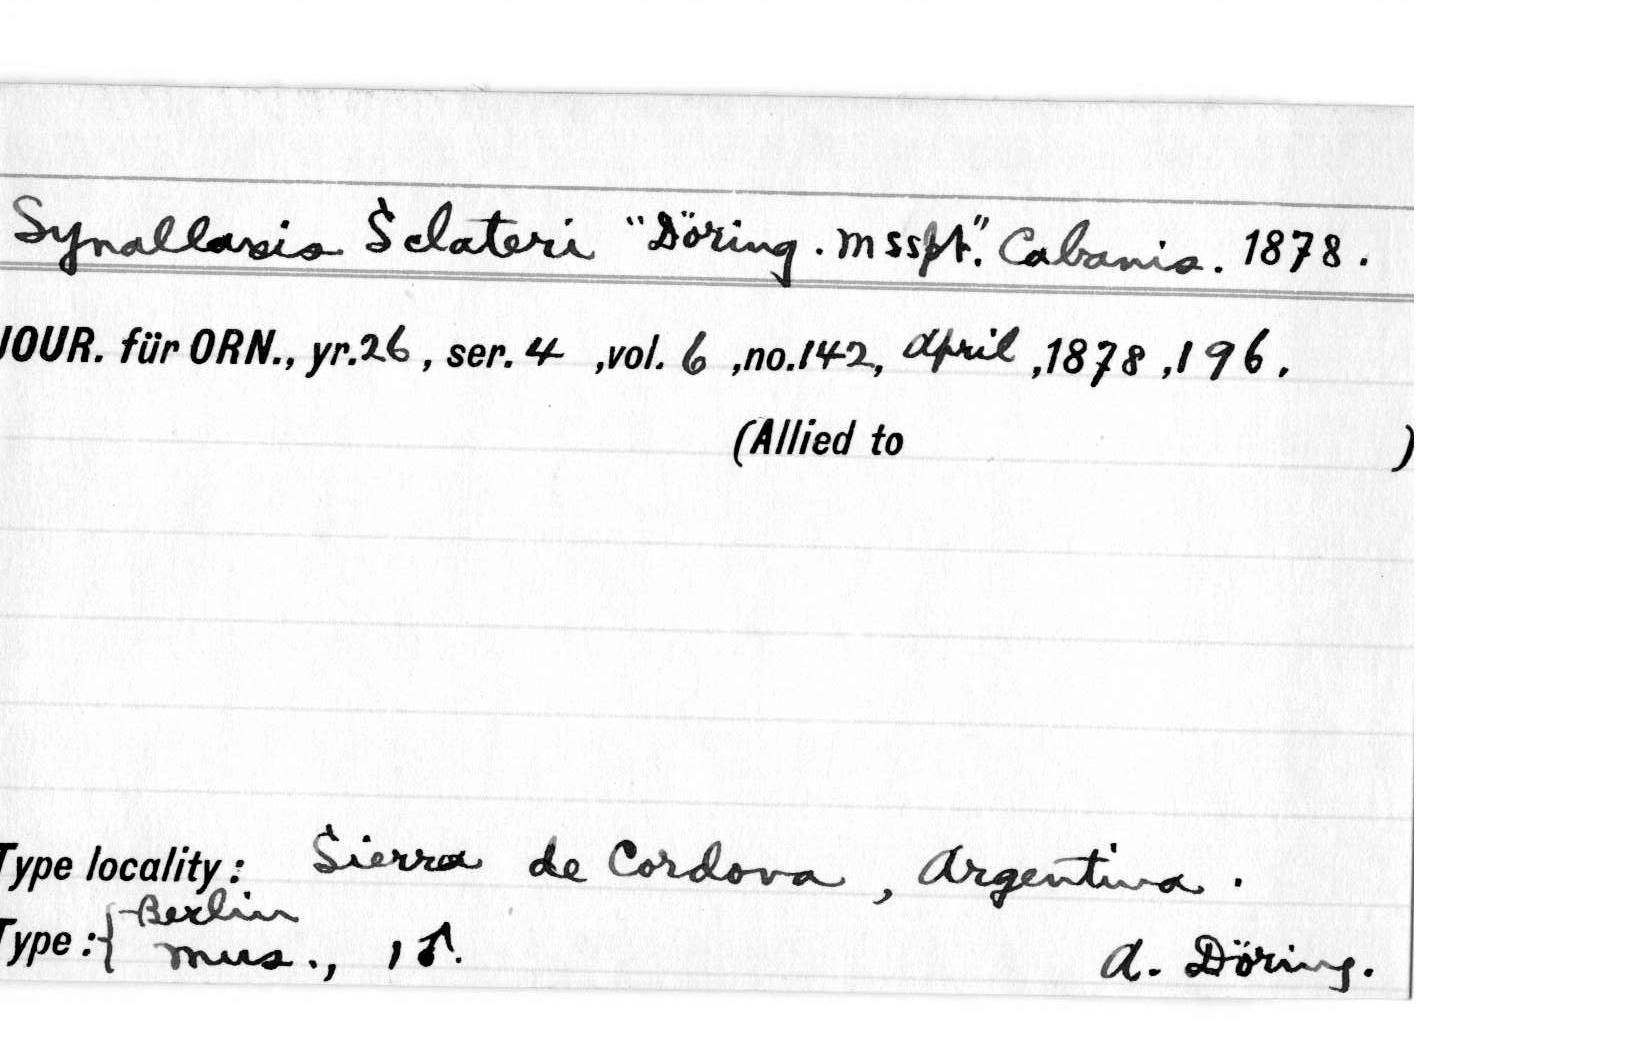 Synallaxis Sclateri "Döring. Msspt." Cabanis. 1878.
JOUR. für ORN., yr.26, ser. 4 ,vol. 6 ,no.142, April ,1878 ,196.
(Allied to )
Type locality: Sierra de Cordova, Argentina.
Type:{ Berlin
Mus., 1♂. A. Döring.